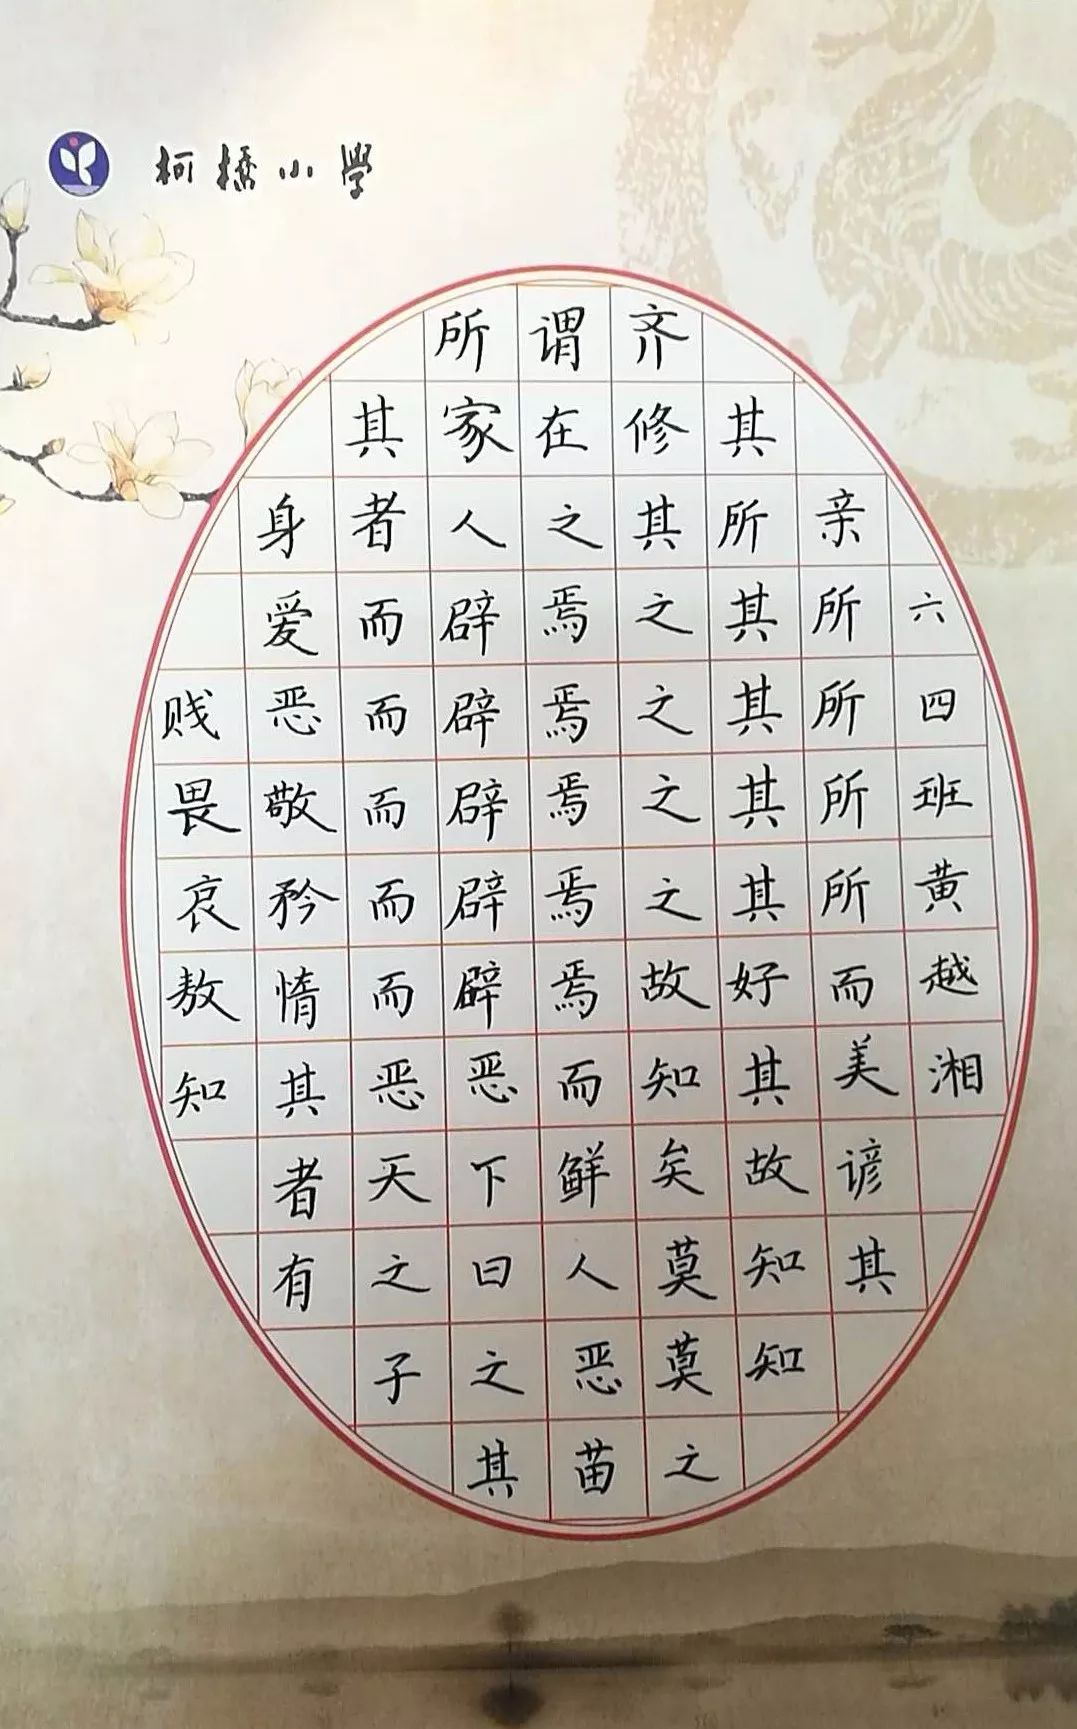 柯桥小学
所谓齐
其家在修其
身者人之其所亲
爱而辟焉之其所六
贱恶而辟焉之其所四
畏敬而辟焉之其所班
哀矜而辟焉之其所黄
敖惰而辟焉故好而越
知其恶恶而知其美湘
者天下鲜矣故谚
有之曰人莫知其
子之恶莫知
其苗之